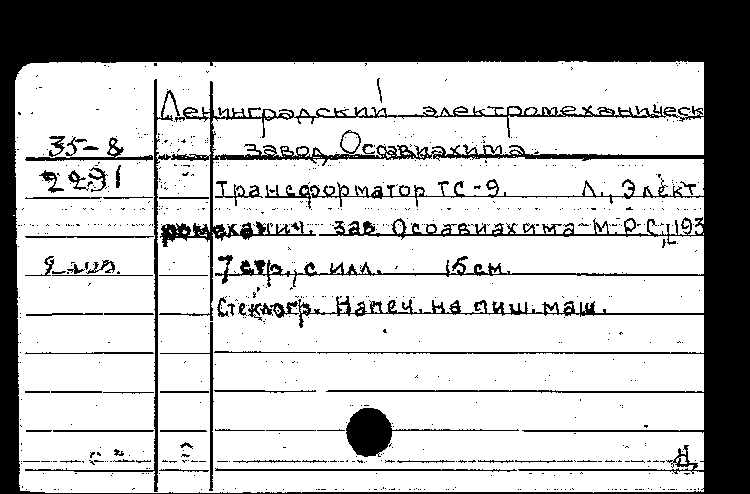 Ленинградский электромеханическ
35-8 завод Осоавиахима.
2291
Трансформатор ТС-9. Л., Элект-
ромеханич. зав. Осоавиахима-М.Р.С., 193
2 экз. 7 стр., с илл. 15 см.
Стеклогр. Напеч. на пиш. маш.